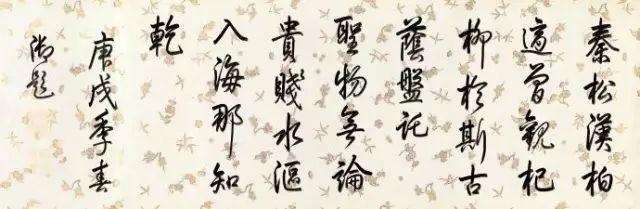 秦松漢柏
遍曾觀杞
柳於斯古
蔭盤託
聖物無論
貴賤水漚
入海那知
乾
庚戌季春
御題